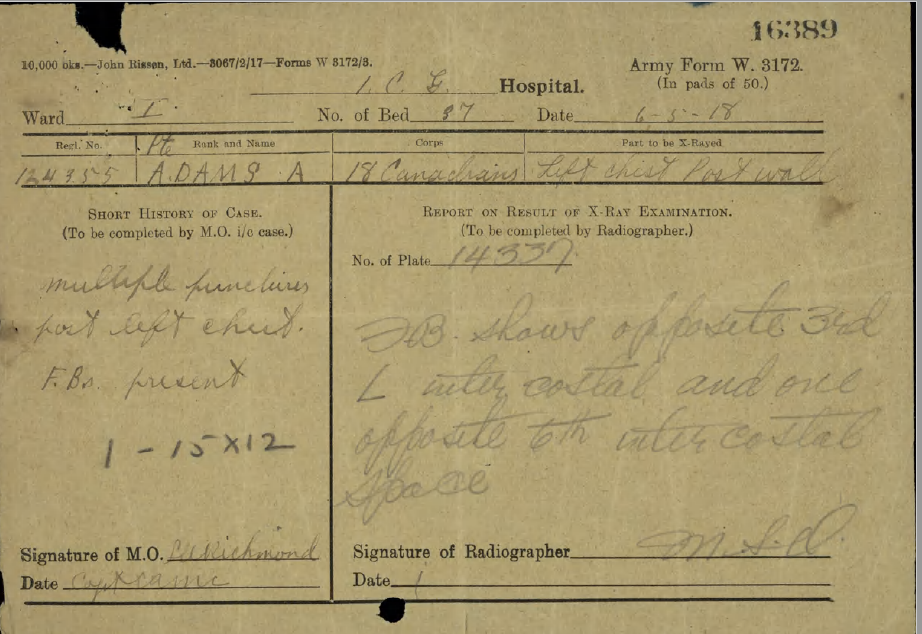 16389
10,000 bks.—John Rissen, Ltd.—3067/2/17—Forms W 3172/3.
Army Form W. 3172.
(In pads of 50.)
1. C. G. Hospital.
Ward I No. of Bed 37 Date 6-5-18
Regl. No. Pte Rank and Name Corps Part to be X-Rayed
124355 ADAMS A 18 Canadians Left chest Post wall
SHORT HISTORY OF CASE.
(To be completed by M.O. i/c case.)
multiple punctures
post left chest.
F.Bs. present
1 - 15 x 12
Signature of M.O. Richmond
Date Capt CAMC
REPORT ON RESULT OF X-RAY EXAMINATION.
(To be completed by Radiographer.)
No. of Plate 14337
F.B. shows opposite 3rd
L inter costal and one
opposite 6th inter costal
space
Signature of Radiographer
Date